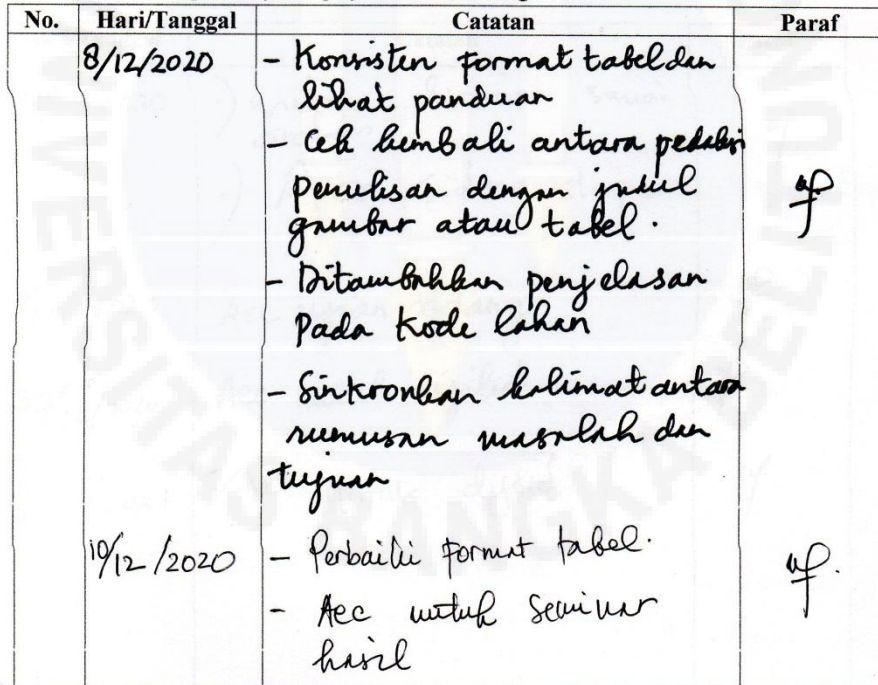 No. Hari/Tanggal Catatan Paraf
8/12/2020 - Konsisten format tabel dan
lihat panduan
- Cek kembali antara redaksi
penulisan dengan judul
gambar atau tabel.
- Ditambahkan penjelasan
pada kode lahan
- Sinkronkan kalimat antara
rumusan masalah dan
tujuan
10/12/2020 - Perbaiki format tabel.
- Acc untuk seminar
hasil
UNIVERSITAS BANGKA BELITUNG